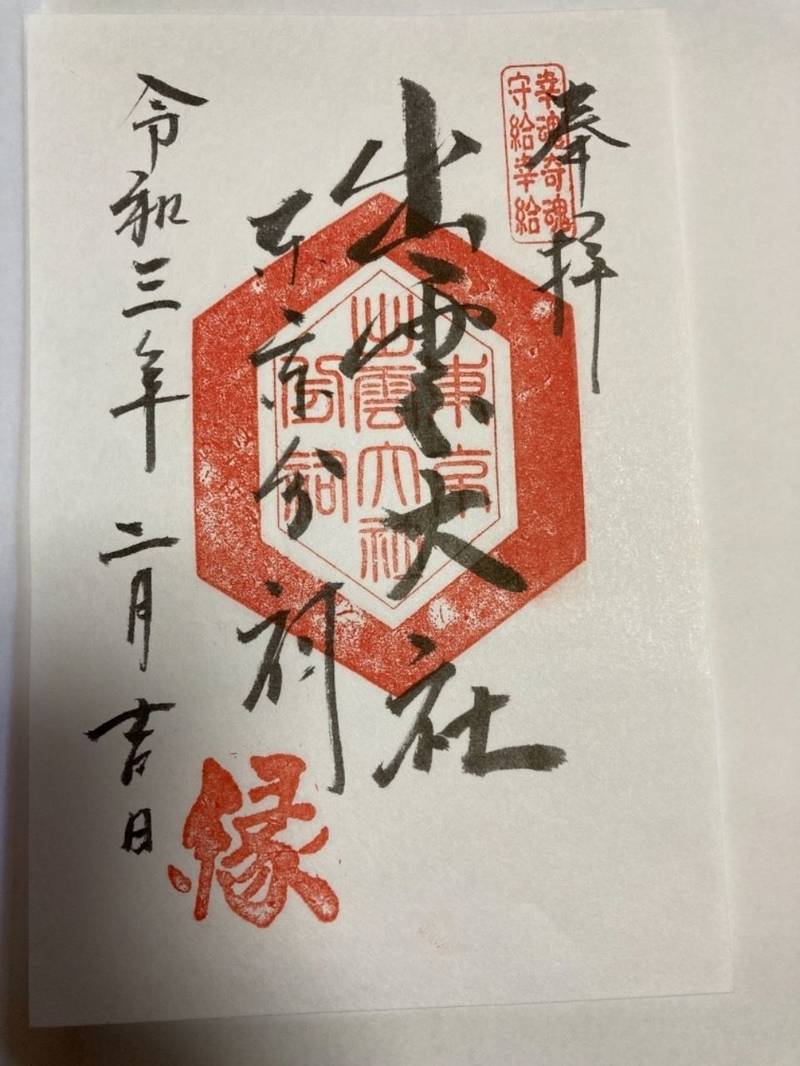 奉拝
幸魂奇魂
守給幸給
出雲大社
東京分祠
東京
出雲大社
分祠
令和三年 二月吉日
縁